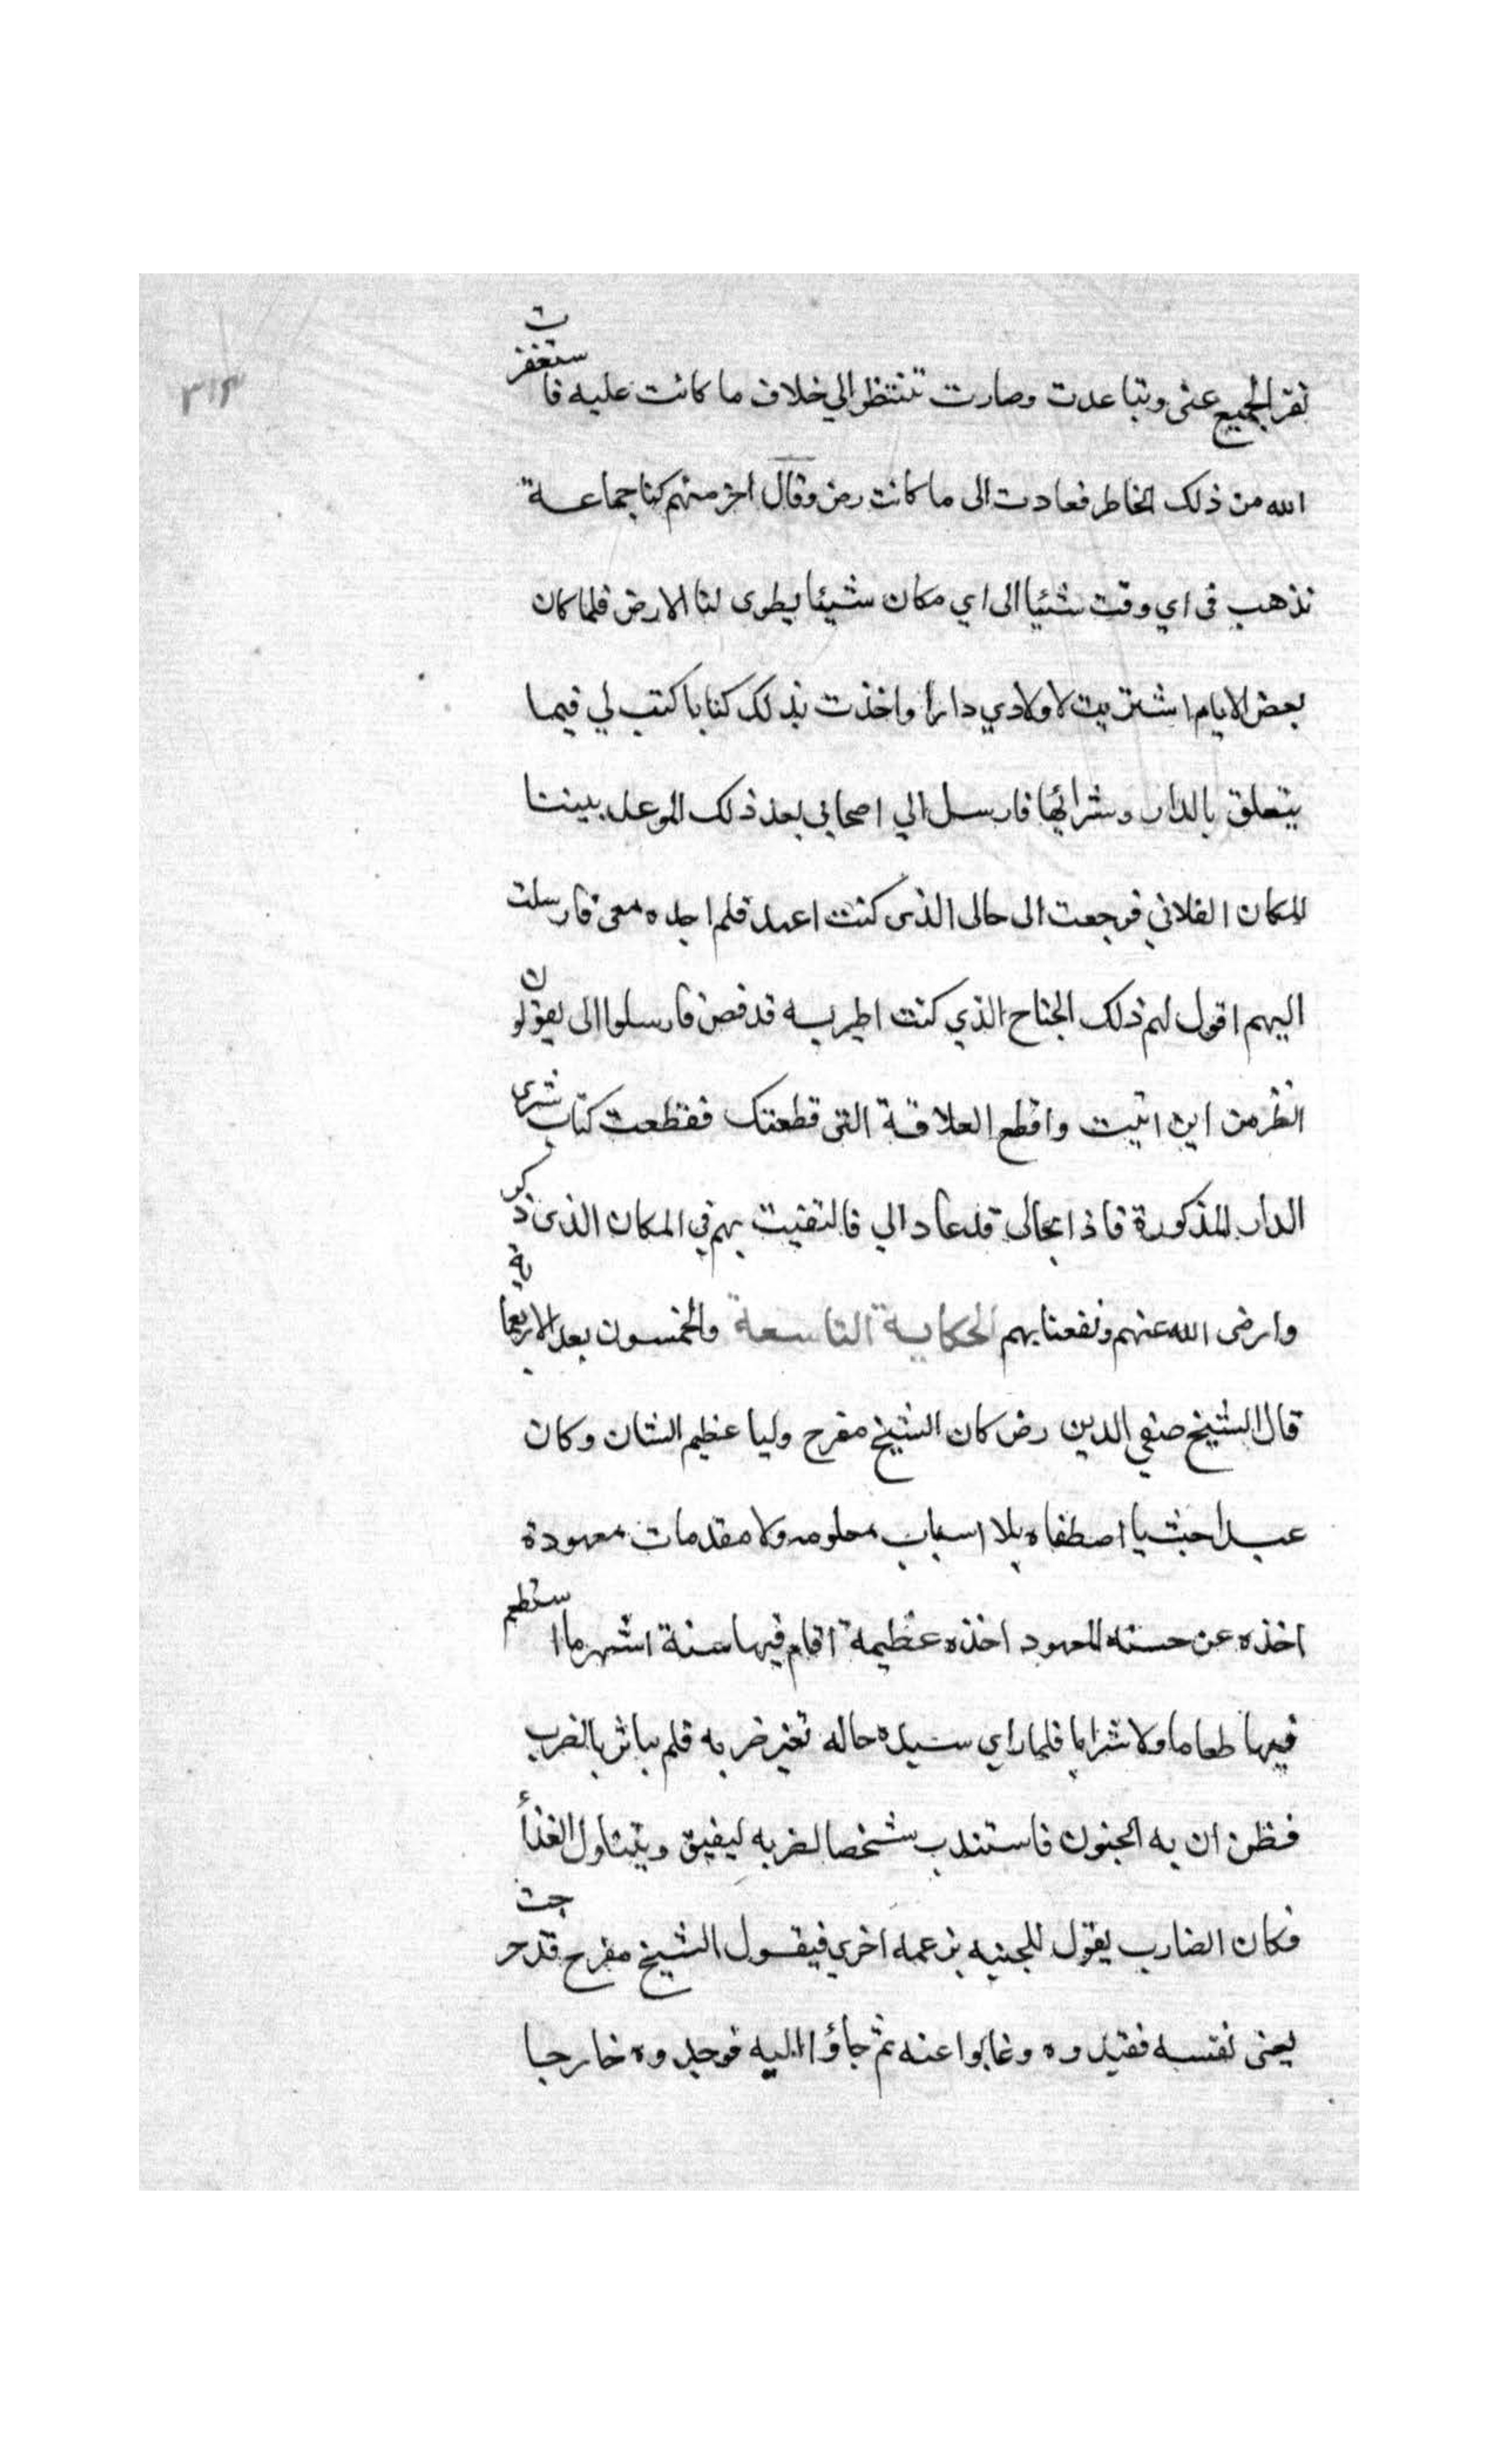 ٣١٤
نفر الجميع عنى وتباعدت وصارت تنتظر الي خلاف ما كانت عليه فاستغفرت
الله من ذلك الخاطر فعادت الى ما كانت رض وقال اخر منهم كنا جماعة
نذهب فى اي وقت شئيا الى اي مكان شيئا يطوى لنا الارض فلما كان
بعض الايام اشتريت لاولادي دارا واخذت بذلك كتابا كتب لي فيما
يتعلق بالدار وشرائها فارسل الي اصحابي بعد ذلك الموعد بيننا
المكان الفلاني فرجعت الى حالى الذى كنت اعهد فلم اجده معى فارسلت
اليهم اقول لهم ذلك الجناح الذي كنت اطير به قد قص فارسلوا الى يقولون
انظر من اين اتيت واقطع العلاقة التى قطعتك فقطعت كتاب شرى
الدار المذكورة فاذا بحالى قد عاد الي فالتقيت بهم في المكان الذى ذكر
وارضى الله عنهم ونفعنا بهم الحكاية التاسعة والخمسون بعد الاربعمائة
قال الشيخ صفي الدين رض كان الشيخ مفرح وليا عظيم الشان وكان
عبدا حبشيا اصطفاه بلا اسباب معلومه ولا مقدمات معهودة
اخذه عن حسته المعهود اخذه عظيمة اقام فيها ستة اشهر ما استطعم
فيها طعاما ولا شرابا فلما راي سيده حاله تغير ضربه فلم يباثر بالضرب
فظن ان به الجنون فاستندب شخصا لضربه ليفيق ويتناول الغذأ
فكان الضارب يقول للجنيه بزعمه اخرجي فيقول الشيخ مفرح قد خرجت
يعنى نفسه فقيدوه وغابوا عنه ثم جاؤا اليه فوجدوه خارجا